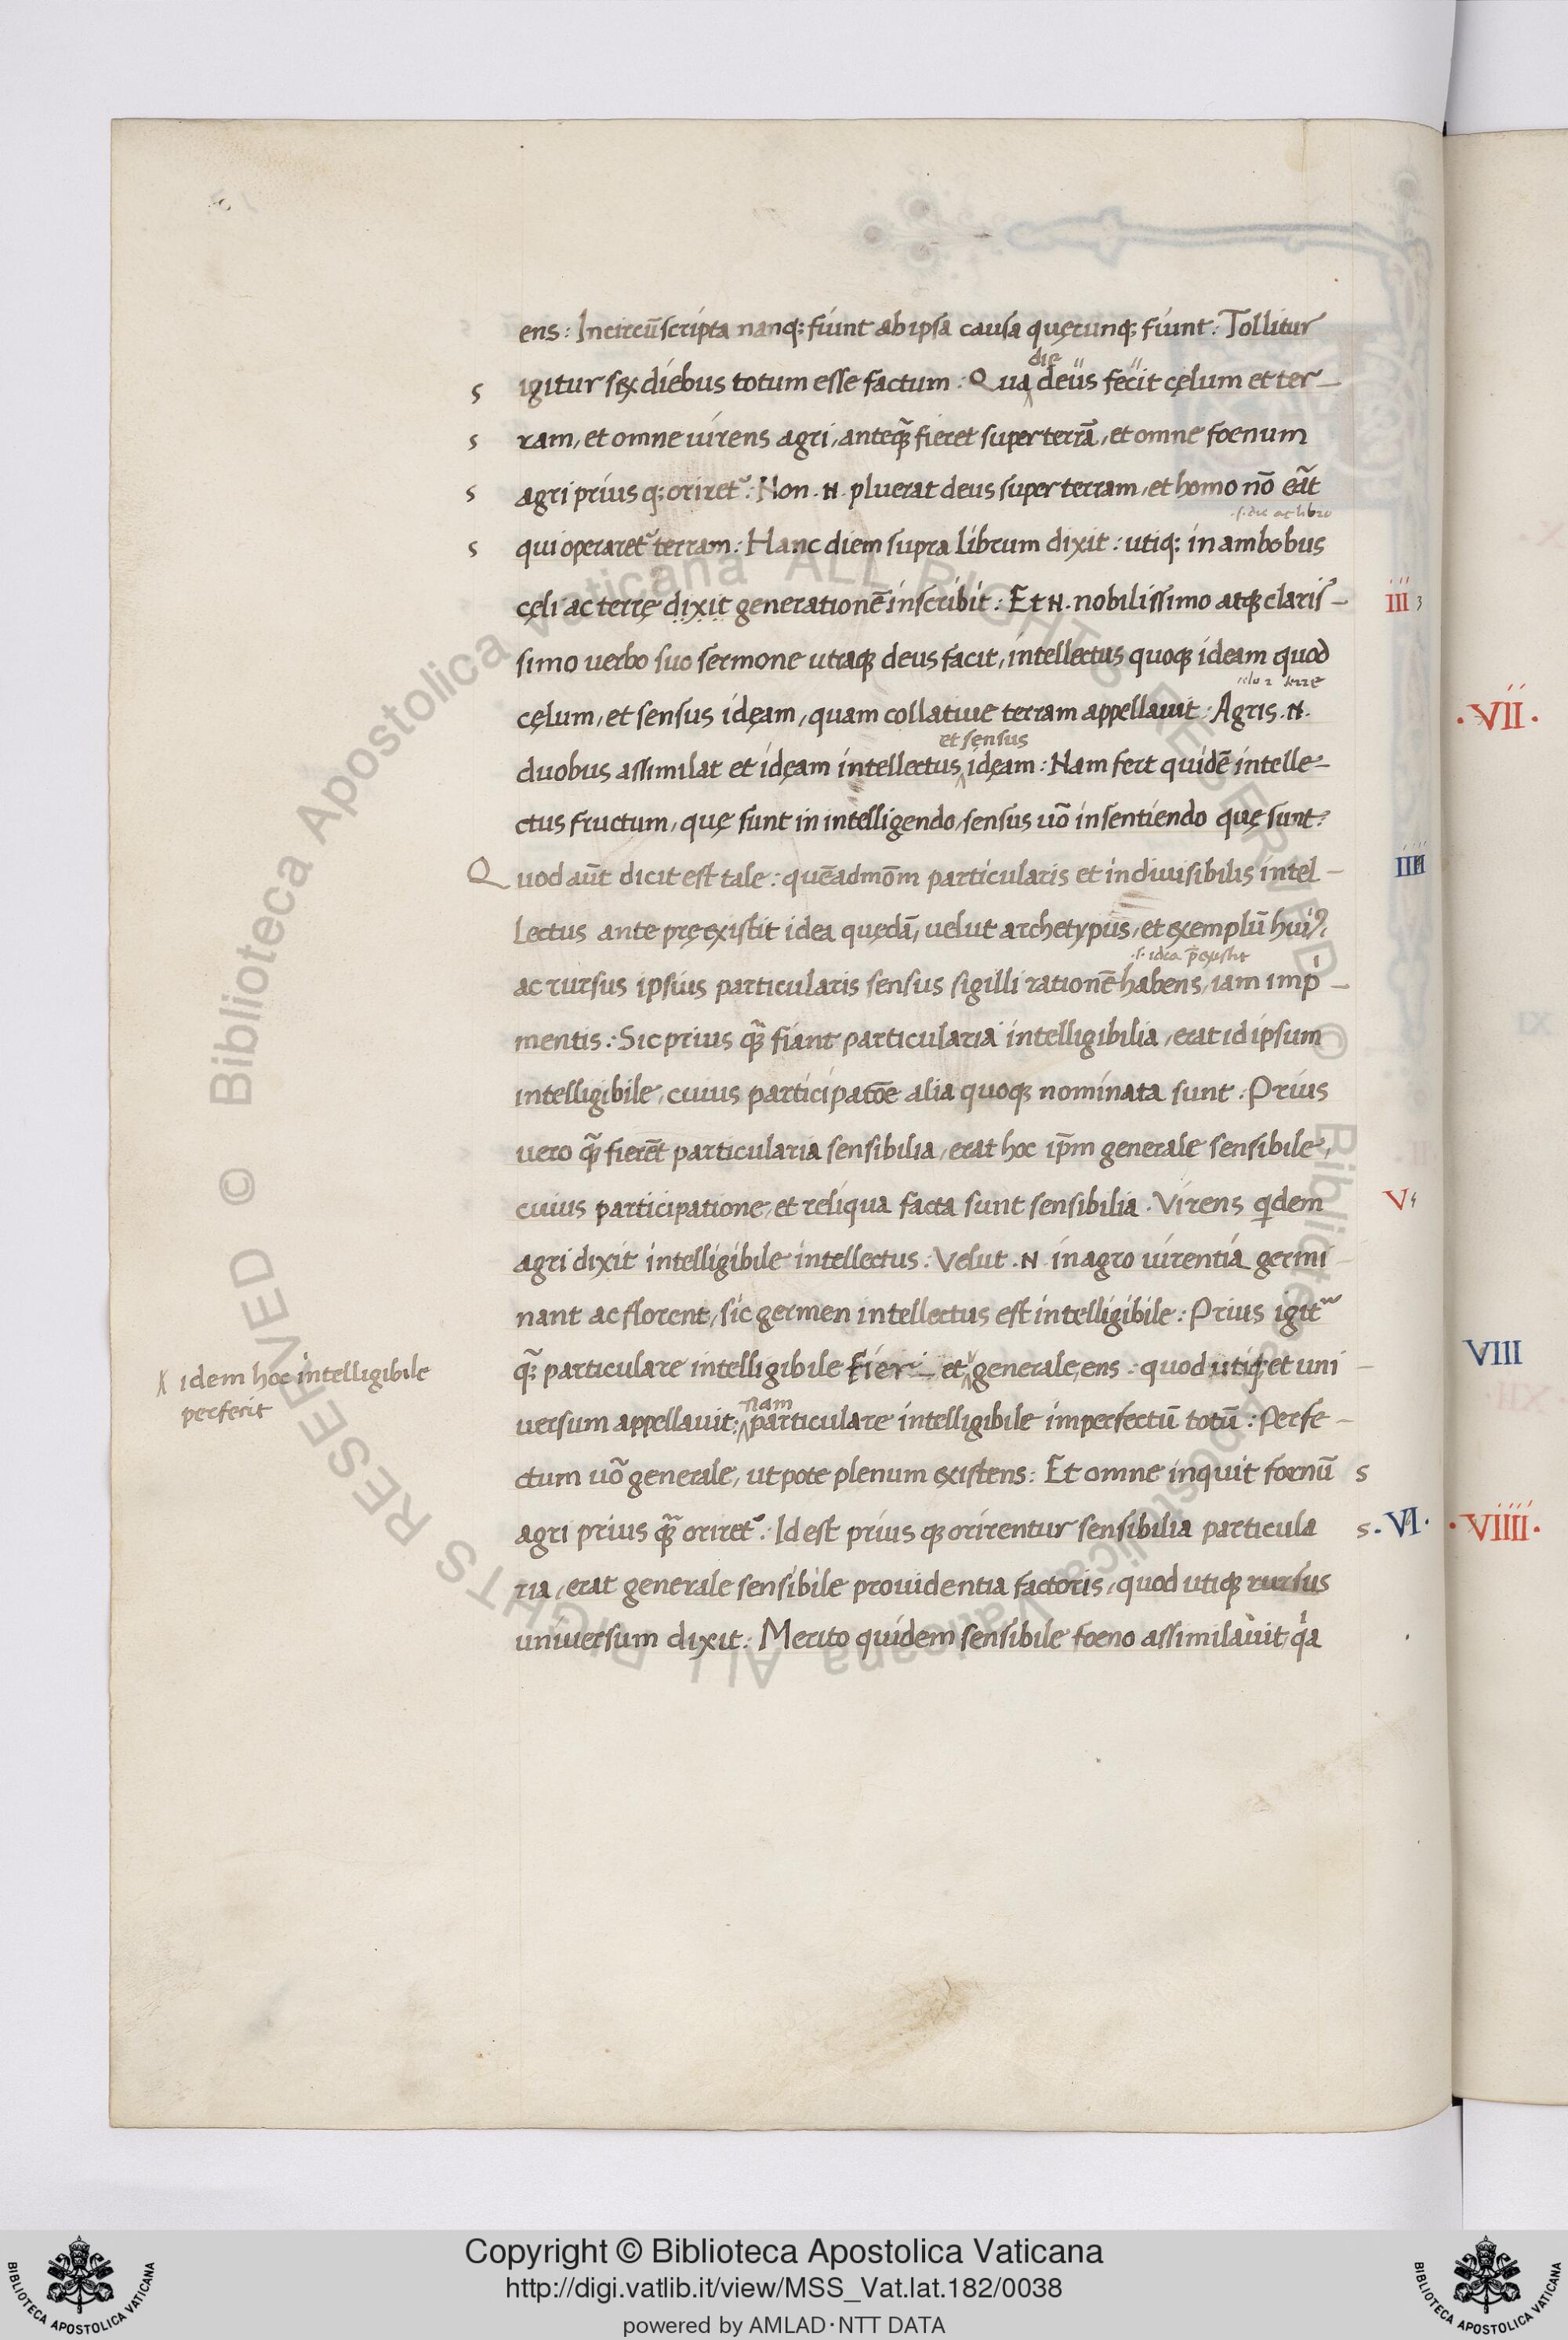 ens: Incircūscripta nanq; fiunt ab ipsa causa quęcunq; fiunt: Tollitur
die
igitur sex diebus totum esse factum: Qua deus fecit cęlum et ter-
s
ram, et omne uirens agri, anteq̃ fieret super terrā, et omne foenum
s
agri prius q; oriret᷑: Non .N. pluerat deus super terram, et homo nō erāt
s
.s. die ac libro
qui operaret᷑ terram: Hanc diem supra librum dixit: utiq; in ambobus
s
cęli ac terrę dixit generationē inscribit: Et .N. nobilissimo atq; claris-
III 3
simo uerbo suo sermone utraq; deus facit, intellectus quoq; ideam quod
terre
cęlum, et sensus idęam, quam collatiue terram appellauit: Agris .N.
.VII.
et sensus
duobus assimilat et idęam intellectus idęam: Nam fert quidē intelle-
ctus fructum, quę sunt in intelligendo, sensus uō in sentiendo quę sunt:
Quod aūt dicit est tale: quēadmōm particularis et indiuisibilis intel-
IIII
lectus ante pręexistit idea quędā, uelut archetypus, et exemplū hui9:
.s. idea p̄existit
ac rursus ipsius particularis sensus sigilli rationē habens, iam imp̍-
mentis: Sic prius q̃ fiant particularia intelligibilia, erat id ipsum
intelligibile, cuius participatōe alia quoq; nominata sunt: Prius
uero q̃ fierēt particularia sensibilia, erat hoc ip̄m generale sensibile,
cuius participatione, et reliqua facta sunt sensibilia. Virens q̍dem
V
agri dixit intelligibile intellectus: Velut .N. in agro uirentia germi
nant ac florent, sic germen intellectus est intelligibile: Prius igit᷑
q̃ particulare intelligibile fieri - et generale, ens: quod utiq; et uni-
VIII
idem hoc intelligibile
perfecit
nam
uersum appellauit: particulare intelligibile imperfectū totū: Perfe-
ctum uō generale, utpote plenum existens: Et omne inquit foenū
s
agri prius q̃ oriret᷑: Id est prius q; orirentur sensibilia particula
s .VI.
.VIIII.
ria, erat generale sensibile prouidentia factoris, quod utiq; rursus
uniuersum dixit: Merito quidem sensibile foeno assimilauit, q̍a
Copyright © Biblioteca Apostolica Vaticana
http://digi.vatlib.it/view/MSS_Vat.lat.182/0038
powered by AMLAD·NTT DATA
BIBLIOTECA APOSTOLICA VATICANA
BIBLIOTECA APOSTOLICA VATICANA
© Biblioteca Apostolica Vaticana ALL RIGHTS RESERVED © Biblioteca Apostolica Vaticana ALL RIGHTS RESERVED